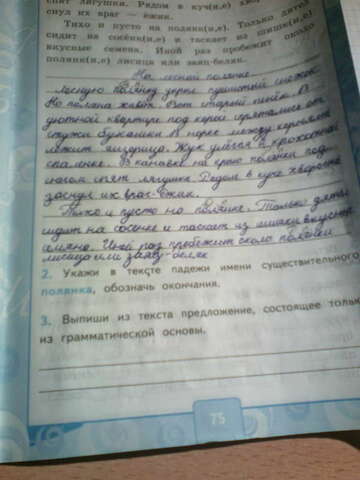 спят лягушки. Рядом в куч(и,е)
снул их враг — ёжик.
Тихо и пусто на полянк(и,е). Только дятел
сидит на сосёнк(и,е) и таскает из шишк(и,е)
вкусные семена. Иной раз пробежит около
полянк(и,е) лисица или заяц-беляк.
На лесной полянке
Лесную полянку укрыл пушистый снежок.
Но поляна живая. Вот старый пенёк. В
уютной квартире под корой спрятались от
стужи букашки. В норке между корнями
лежит ящерица. Жук улёгся в крохотной
спаленке. В канавке на краю полянки под
снегом спят лягушки. Рядом в куче хвороста
заснул их враг-ёжик.
Тихо и пусто на полянке. Только дятел
сидит на сосенке и таскает из шишки вкусные
семена. Иной раз пробежит около полянки
лисица или заяц-беляк
2. Укажи в тексте падежи имени существительного
полянка, обозначь окончания.
3. Выпиши из текста предложение, состоящее только
из грамматической основы.
75